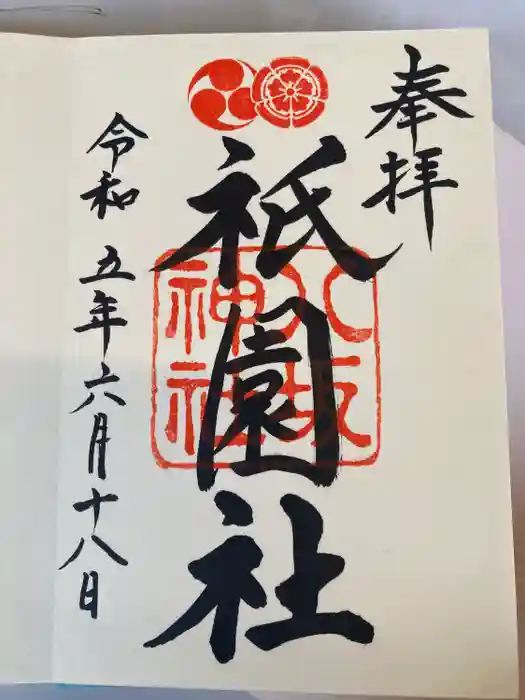 奉拝
祇園社
八坂神社
令和五年六月十八日